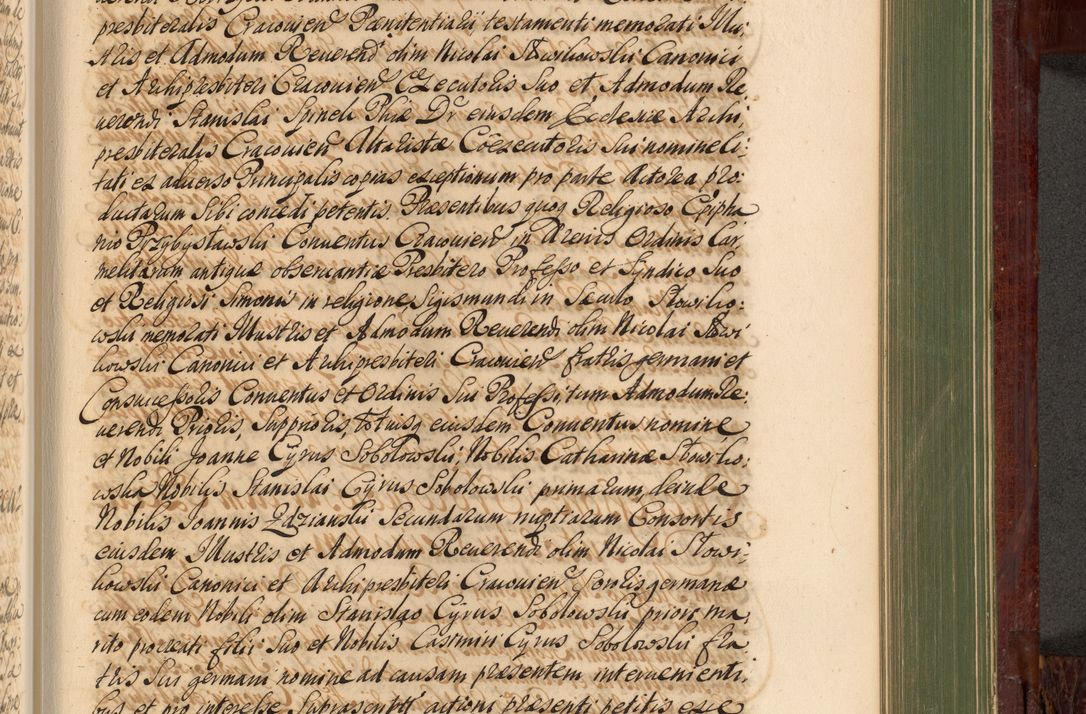 presbiteralis Cracovien Pænitentiarii, testamenti memorati Illu:
stris et Admodum Reverend olim Nicolai Słowikowski Canonici
et Archipresbiteri Cracovien Executoris Suo et Admodum Re:
verendi Stanislai Spinek Phiæ Dr eiusdem Ecclesiæ Archi
presbiteralis Cracovien Altaristæ Coexecutoris Sui nomine Ci:
tati ex adverso Principalis copias exceptionum pro parte Actorea pro:
ductarum Sibi concedi petentis. Præsentibus quoq Religioso Epipha
nio Przybysławski Conventus Cracovien in Arenis Ordinis Car
melitarum antiquæ observantiæ Presbitero Professo et Syndico Suo
et Religiosi Simonis in religione Sigismundi in Sæculo Słowiko:
wski memorati Illustris et Admodum Reverendi olim Nicolai Słowi
kowski Canonici et Archipresbiteri Cracovien fratris germani et
Consuccessoris Conventus et Ordinis Sui Professi, tum Admodum Re:
verendi Prioris, Supprioris, totiusq eiusdem Conventus nomine
et Nobili Joanne Cyrus Sobolowski; Nobilis Catharinæ Słowiko:
wska Nobilis Stanislai Cyrus Sobolowski primarum, deinde
Nobilis Joannis Zdzianski Secundarum nuptiarum Consortis
eiusdem Illustris et Admodum Reverendi olim Nicolai Słowi:
kowski Canonici et Archipresbiteri Cracovien Sororis germanæ
cum eodem Nobili olim Stanislao Cyrus Sobolowski priore ma,
rito procreati filii Suo et Nobilis Casimiri Cyrus Sobolowski fra
tris Sui germani nomine ad causam præsentem intervenienti:
bus et pro interesse Subrascribtt actioni præsenti petitis esse